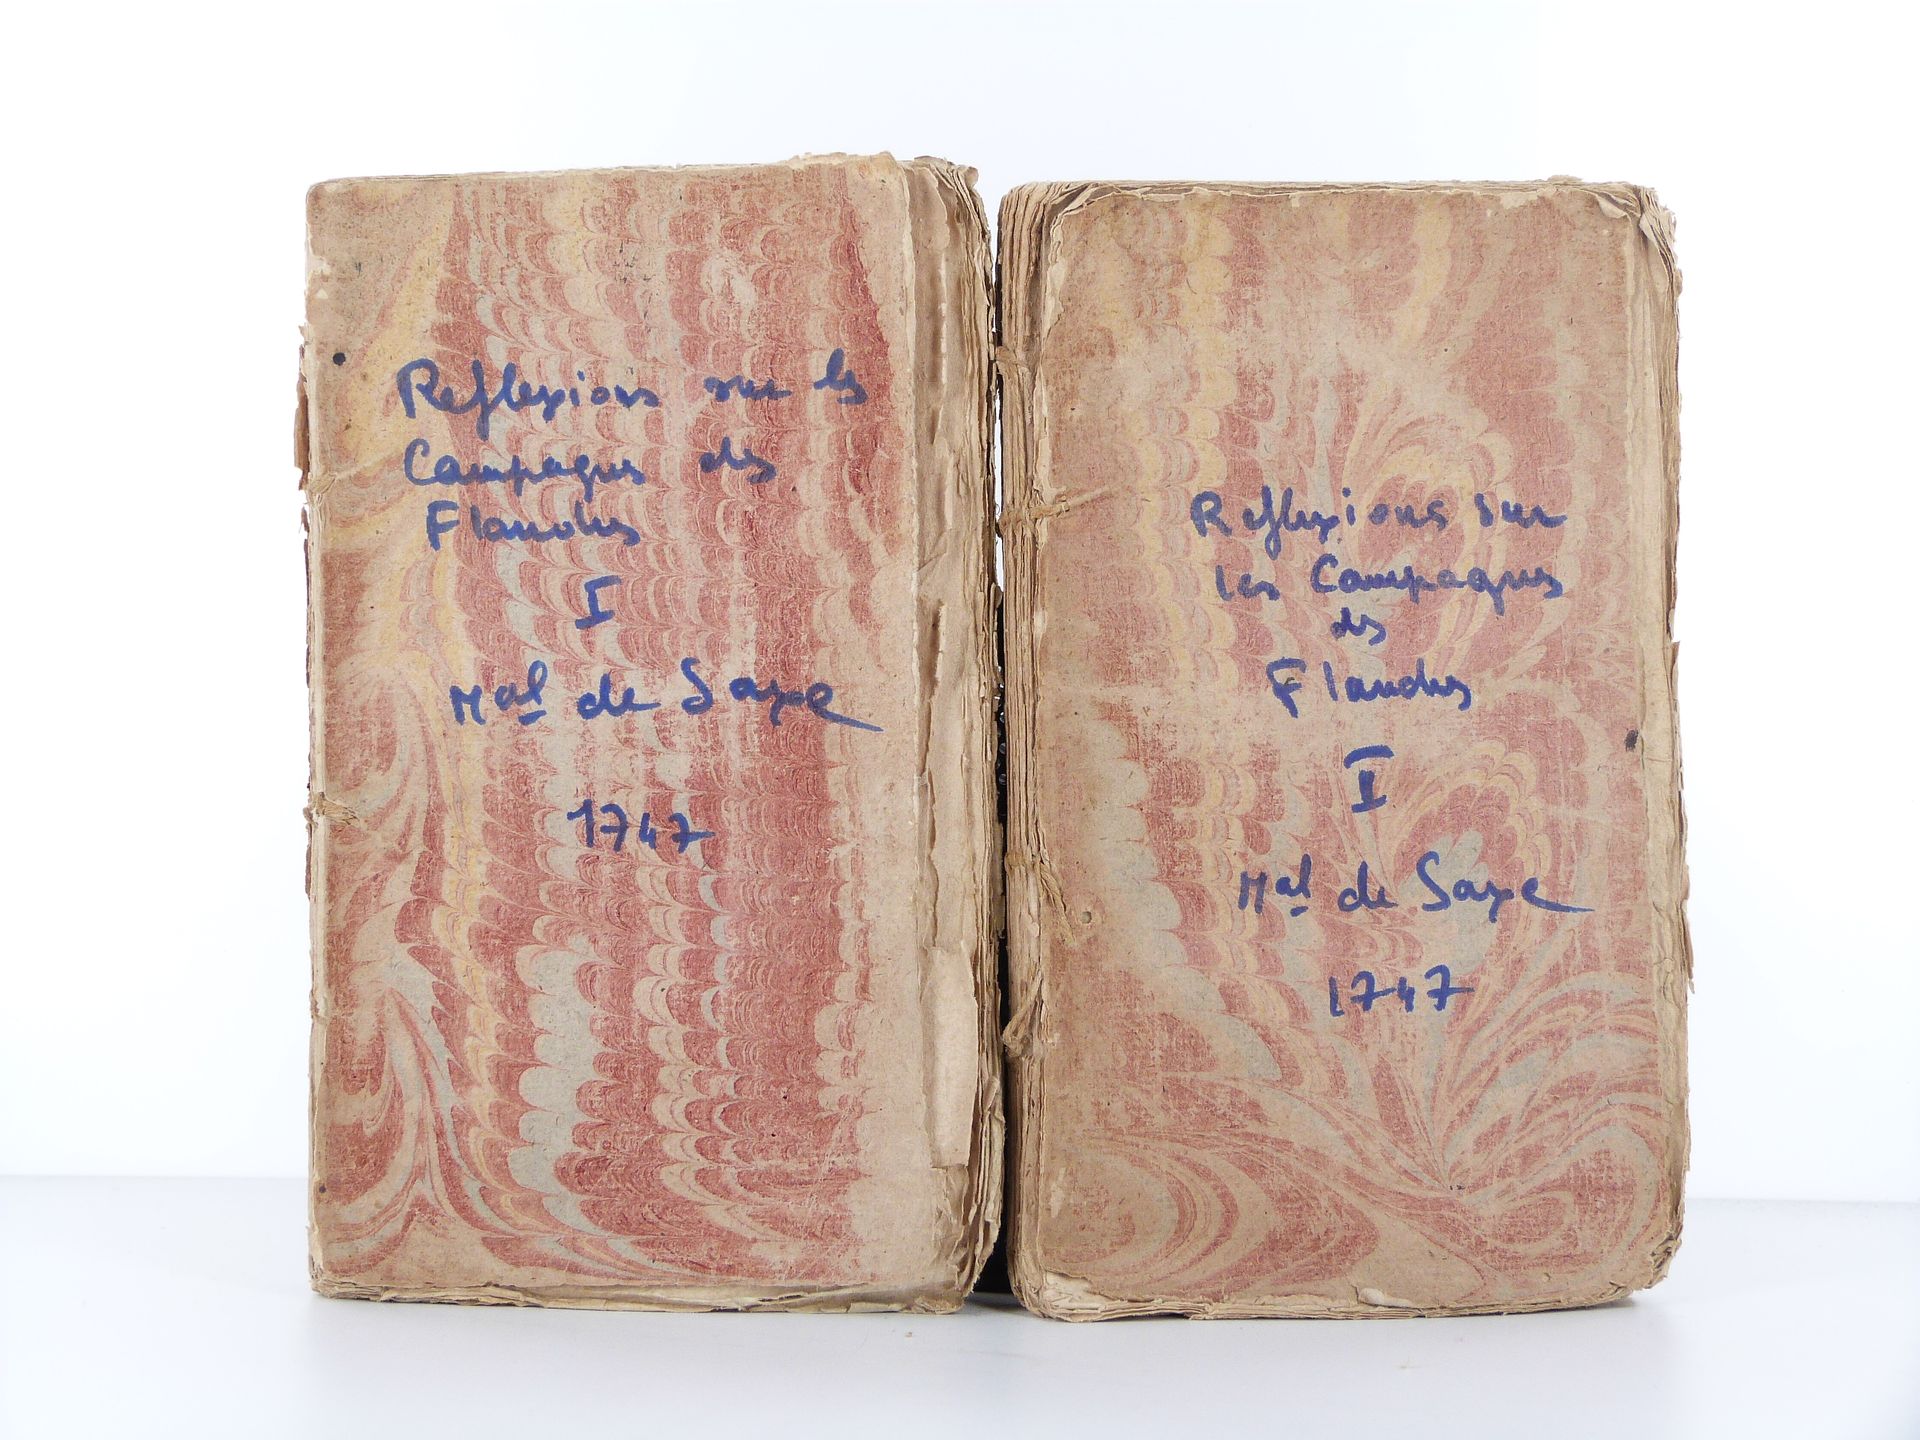 Reflexions sur les
Campagnes des
Flandres
I
Mal de Saxe
1747
Reflexions sur
les Campagnes
des
Flandres
II
Mal de Saxe
1747